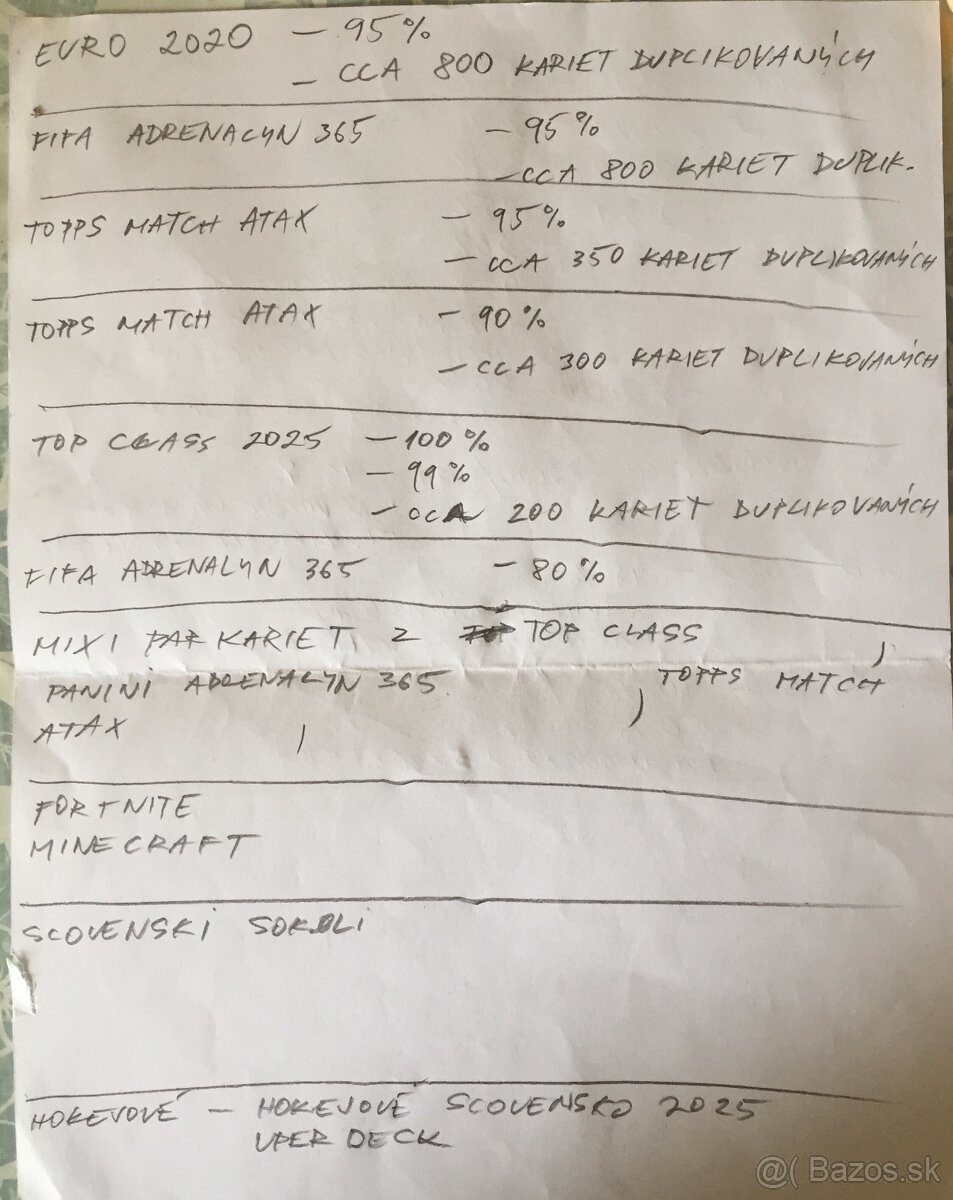 EURO 2020 - 95%
- CCA 800 KARIET DUPLIKOVANÝCH
FIFA ADRENALYN 365 - 95%
- CCA 800 KARIET DUPLIK.
TOPPS MATCH ATAX - 95%
- CCA 350 KARIET DUPLIKOVANÝCH
TOPPS MATCH ATAX - 90%
- CCA 300 KARIET DUPLIKOVANÝCH
TOP CLASS 2025 - 100%
- 99%
- CCA 200 KARIET DUPLIKOVANÝCH
FIFA ADRENALYN 365 - 80%
MIXI PAR KARIET Z TOP CLASS,
PANINI ADRENALYN 365, TOPPS MATCH
ATAX,
FORTNITE
MINECRAFT
SLOVENSKI SOKOLI
HOKEJOVÉ - HOKEJOVÉ SLOVENSKO 2025
UPER DECK
@( Bazos.sk